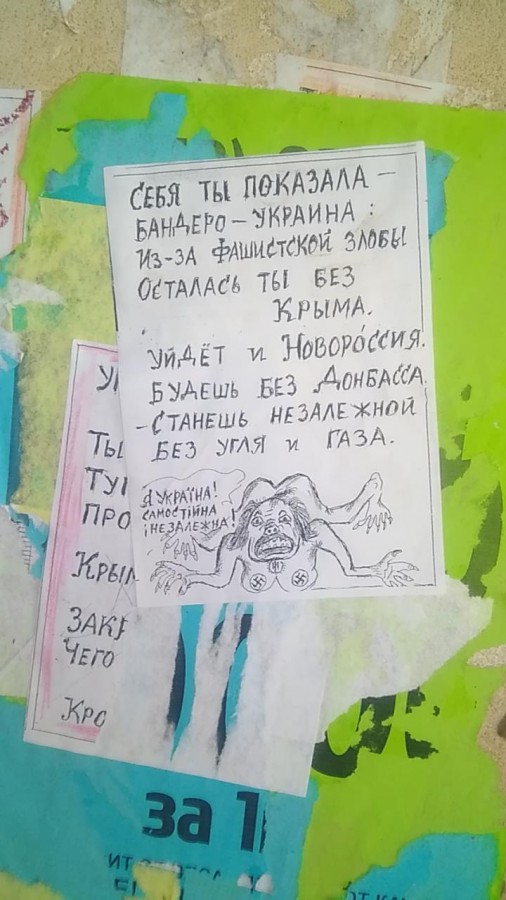 СЕБЯ ТЫ ПОКАЗАЛА –
БАНДЕРО – УКРАИНА :
ИЗ-ЗА ФАШИСТСКОЙ ЗЛОБЫ
ОСТАЛАСЬ ТЫ БЕЗ
КРЫМА.
УЙДЁТ И НОВОРО́ССИЯ.
БУДЕШЬ БЕЗ ДОНБАССА,
– СТАНЕШЬ НЕЗАЛЕЖНОЙ
БЕЗ УГЛЯ И ГАЗА.
Я УКРАЇНА!
САМОСТІЙНА
І НЕЗАЛЕЖНА!
ТЫ
ПРО
КРЫМ
ЧЕГО
КРО
за 1